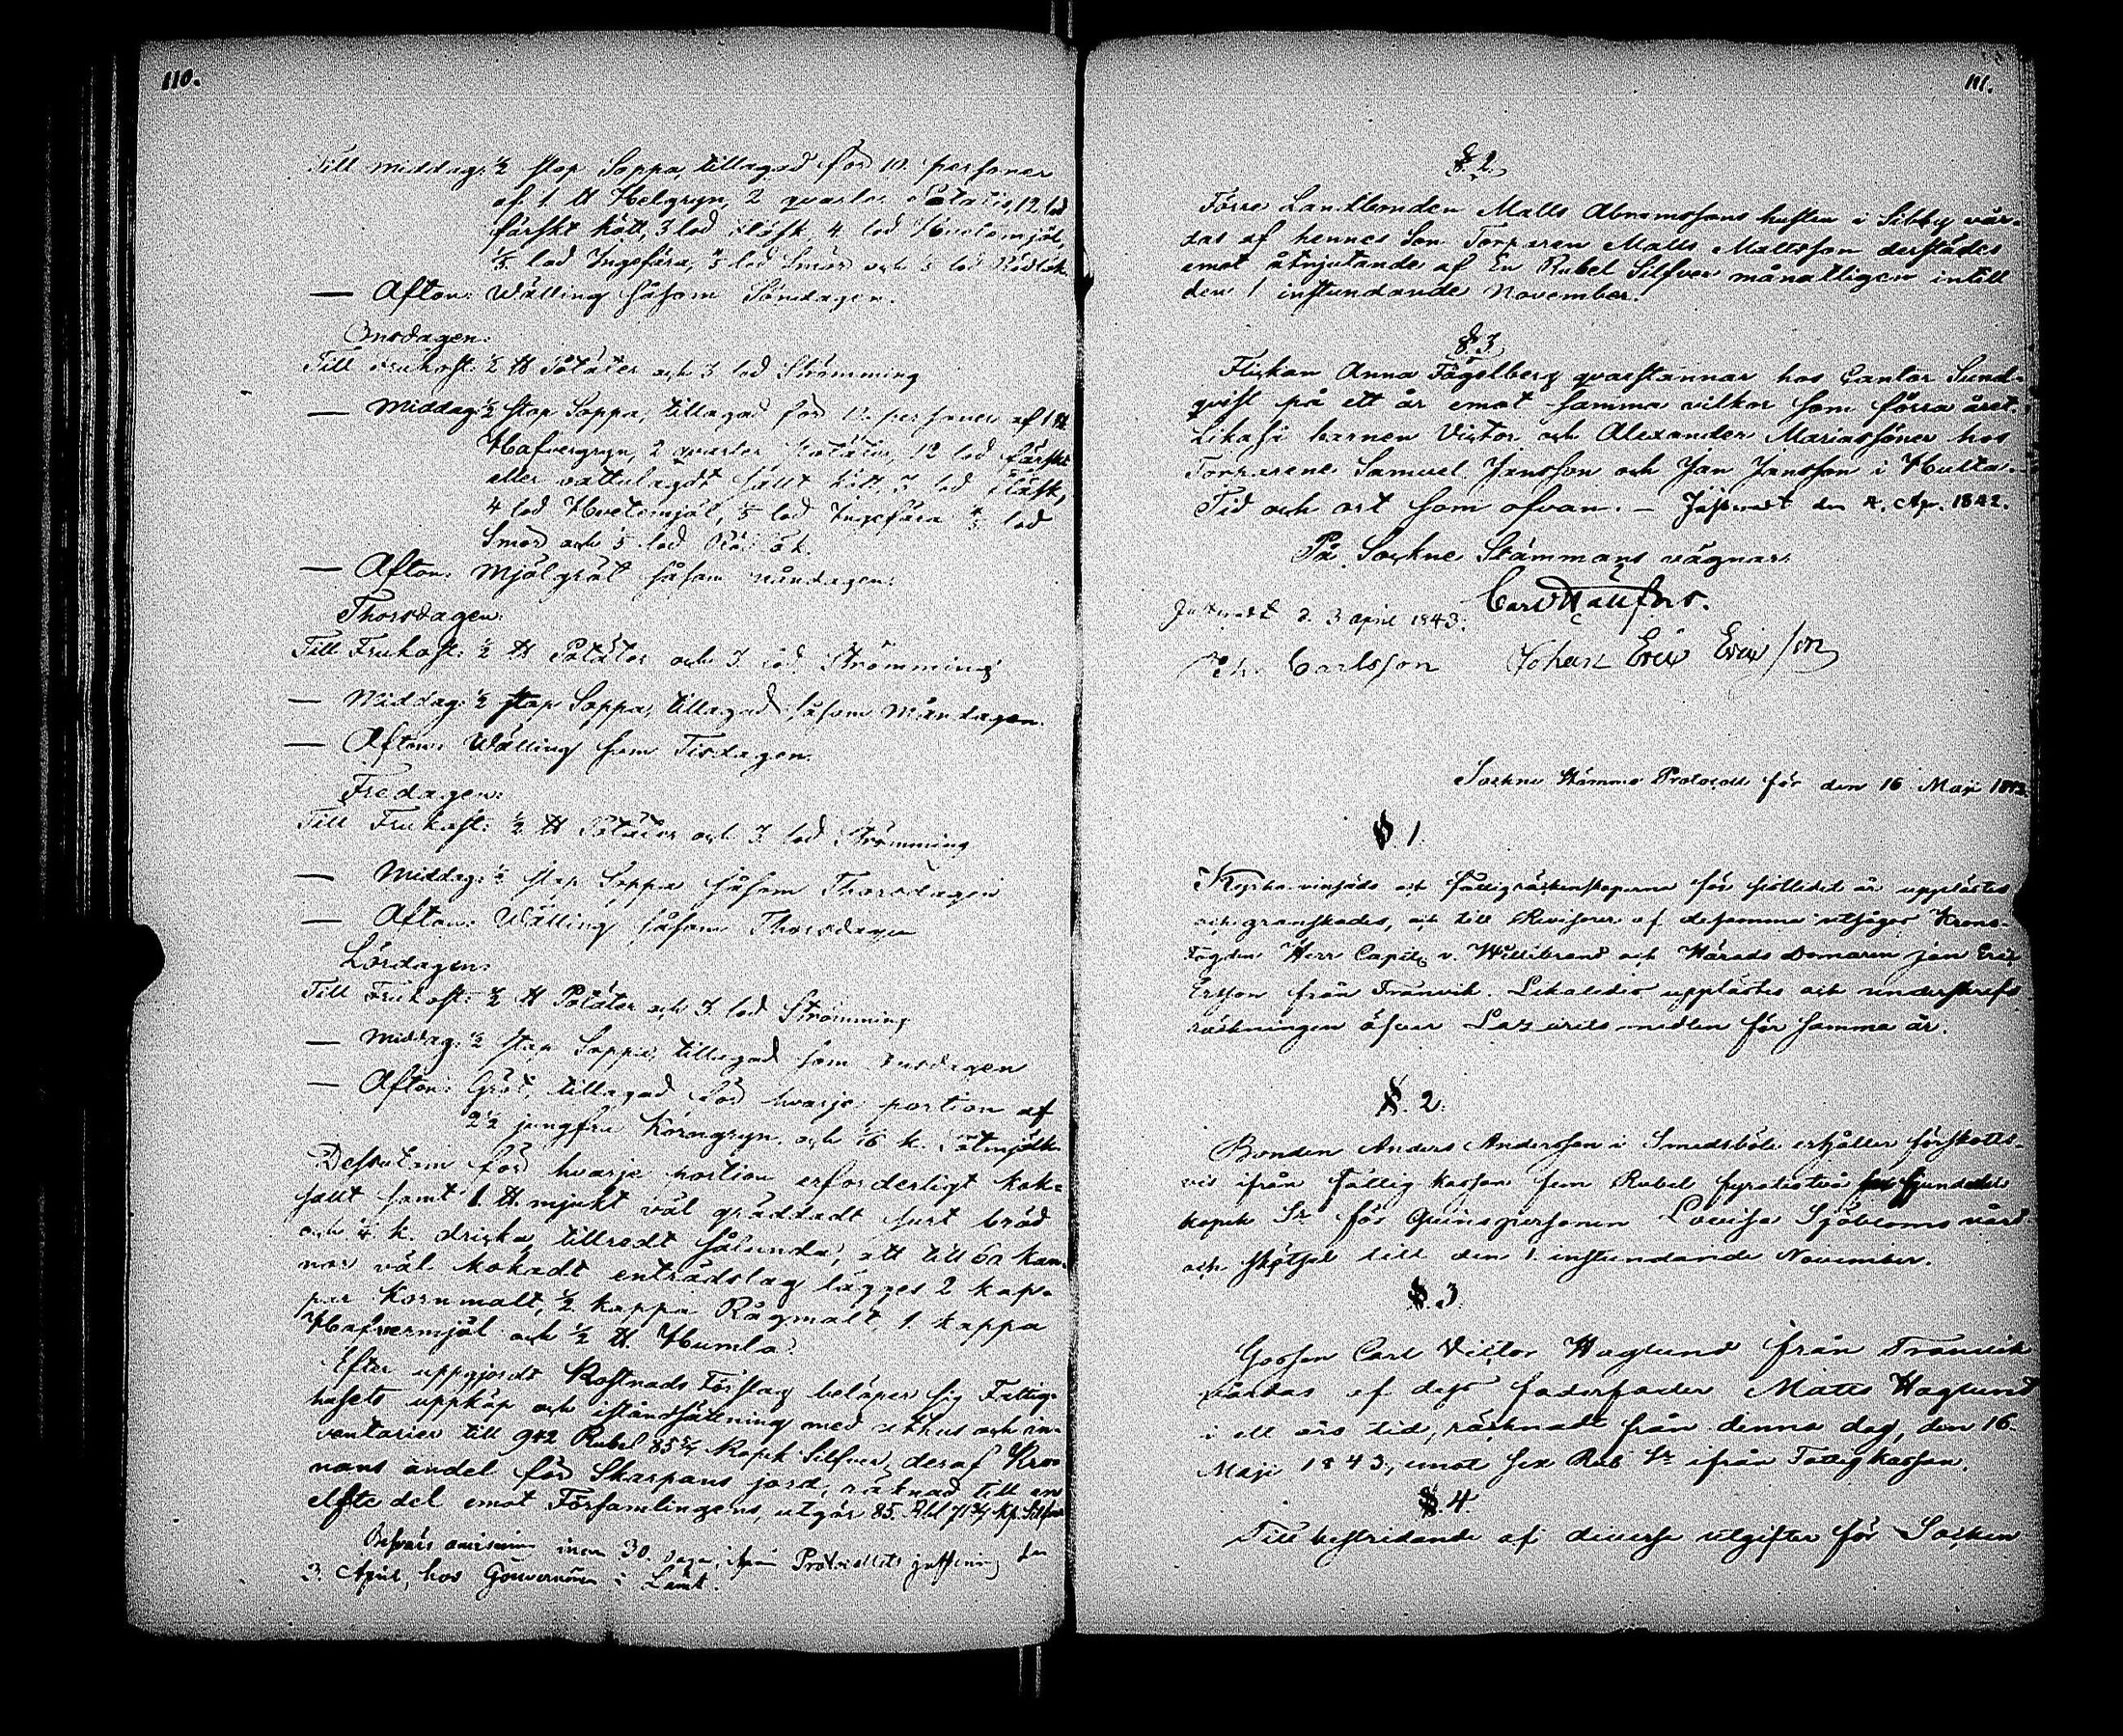 110.
Till middag: ½ stop Soppa, tillagad för 10. personer
af 1 ℔ Helgryn, 2 qvarter Potatis, 12 lod
färskt kött, 3 lod fläsk 4 lod Hvetemjöl,
lod Ingefära, lod Smör och lod Rödlök.
— Afton: Wälling såsom Söndagen.
Onsdagen:
Till Frukost: ½ ℔ Potäter och 3 lod Strömming
— Middag: ½ stop Soppa, tillagad för 10. personer af 1 ℔
Hafvergryn, 2 qvarter Potäter, 12 lod färskt
eller vattulagdt salt kött, 3 lod Fläsk,
4 lod Hvetemjöl, lod Ingefära lod
Smör och lod Rödlök.
— Afton: Mjölgröt såsom Måndagen.
Thorsdagen:
Till Frukost: ½ ℔ Potäter och 3 lod Strömming
— Middag: ½ stop Soppa, tillagad såsom Måndagen.
— Afton: Wälling som Tisdagen.
Fredagen:
Till Frukost: ½ ℔ Potäter och 3 lod Strömming
— Middag: ½ stop Soppa såsom Thorsdagen
— Afton: Wälling såsom Thorsdagen
Lördagen:
Till Frukost: ½ ℔ Potäter och 3 lod Strömming
— Middag: ½ stop Soppa, tillagad som Onsdagen
— Afton: Gröt, tillagad för hvarje portion af
2½ jungfru Korngryn och k. Sötmjölk.
Dessutom för hvarje portion erforderligt kok=
salt samt 1. ℔. mjukt väl gräddadt surt bröd
och k. dricka, tillredt sålunda, att till 60 kan-
nor väl kokadt enträdslag lägges 2 kap-
par Kornmalt, ½ kappa Rågmalt, 1. kappa
Hafvermjöl och ½ ℔. Humla.
Efter uppgjordt Kostnads Förslag belöper sig Fattig-
husets uppköp och iståndsättning med uthus och in-
ventarier till 942 Rubel 85 5/7 Kopek Silfver, deraf Kro-
nans andel för Skarpans jord, räknad till en
elfte del emot Församlingens, utgör 85. Rbl 71 3/7 Kp. Silfver
Besvärs anvisning inom 30. dagar, ifrån Protocollets justering den
3. April, hos Gouverneuren i Länet.
111.
§. 2.
Förre Landtbonden Matts Abramssons hustru i Sibby vår-
das af hennes Son Torparen Matts Mattsson derstädes
emot åtnjutande af En Rubel Silfver månatligen intill
den 1 instundande November.
§. 3
Flickan Anna Fågelberg qvarstannar hos Cantor Sund-
qvist på ett år emot samma vilkor som förra året.
Likaså barnen Victor och Alexander Mariassöner hos
Torparene Samuel Jansson och Jan Jansson i Hulta.
Tid och ort som ofvan. — Justeradt den 4. Apr. 1842.
På Sockne Stämmans vägnar:
Carl Hallfors.
Justeradt d. 3 april 1843.
Carlsson Johan Eric Ericsson
Sockne Stämmo Protocoll för den 16 Maji 1843.
§. 1.
Kyrko-vinsäds och Fattigräkenskaperna för sistlidet år upplästes
och granskades, och till Revisorer af desamma utsågos Krono-
Fogden Herr Capit. v. Willebrand och Härads Domaren Jan Eric
Ersson från Tränvik. Likaledes upplästes och underskrefs
räkningen öfver Lazaretts medlen för samma år.
§. 2.
Bonden Anders Andersson i Smedsböle erhåller förskotts-
vis ifrån Fattig kassan fem Rubel fyratiotvå
kopek Sr för Qvinspersonen Lovisa Sjöbloms vård
och skötsel till den 1. instundande November.
§. 3.
Gossen Carl Victor Haglund från Tranvik
vårdas af dess faderfader Matts Haglund
i ett års tid, räknadt från denna dag, den 16.
Maji 1843, emot sex Rub Sr ifrån Fattigkassan.
§. 4.
Till bestridande af diverse utgifter för Socken